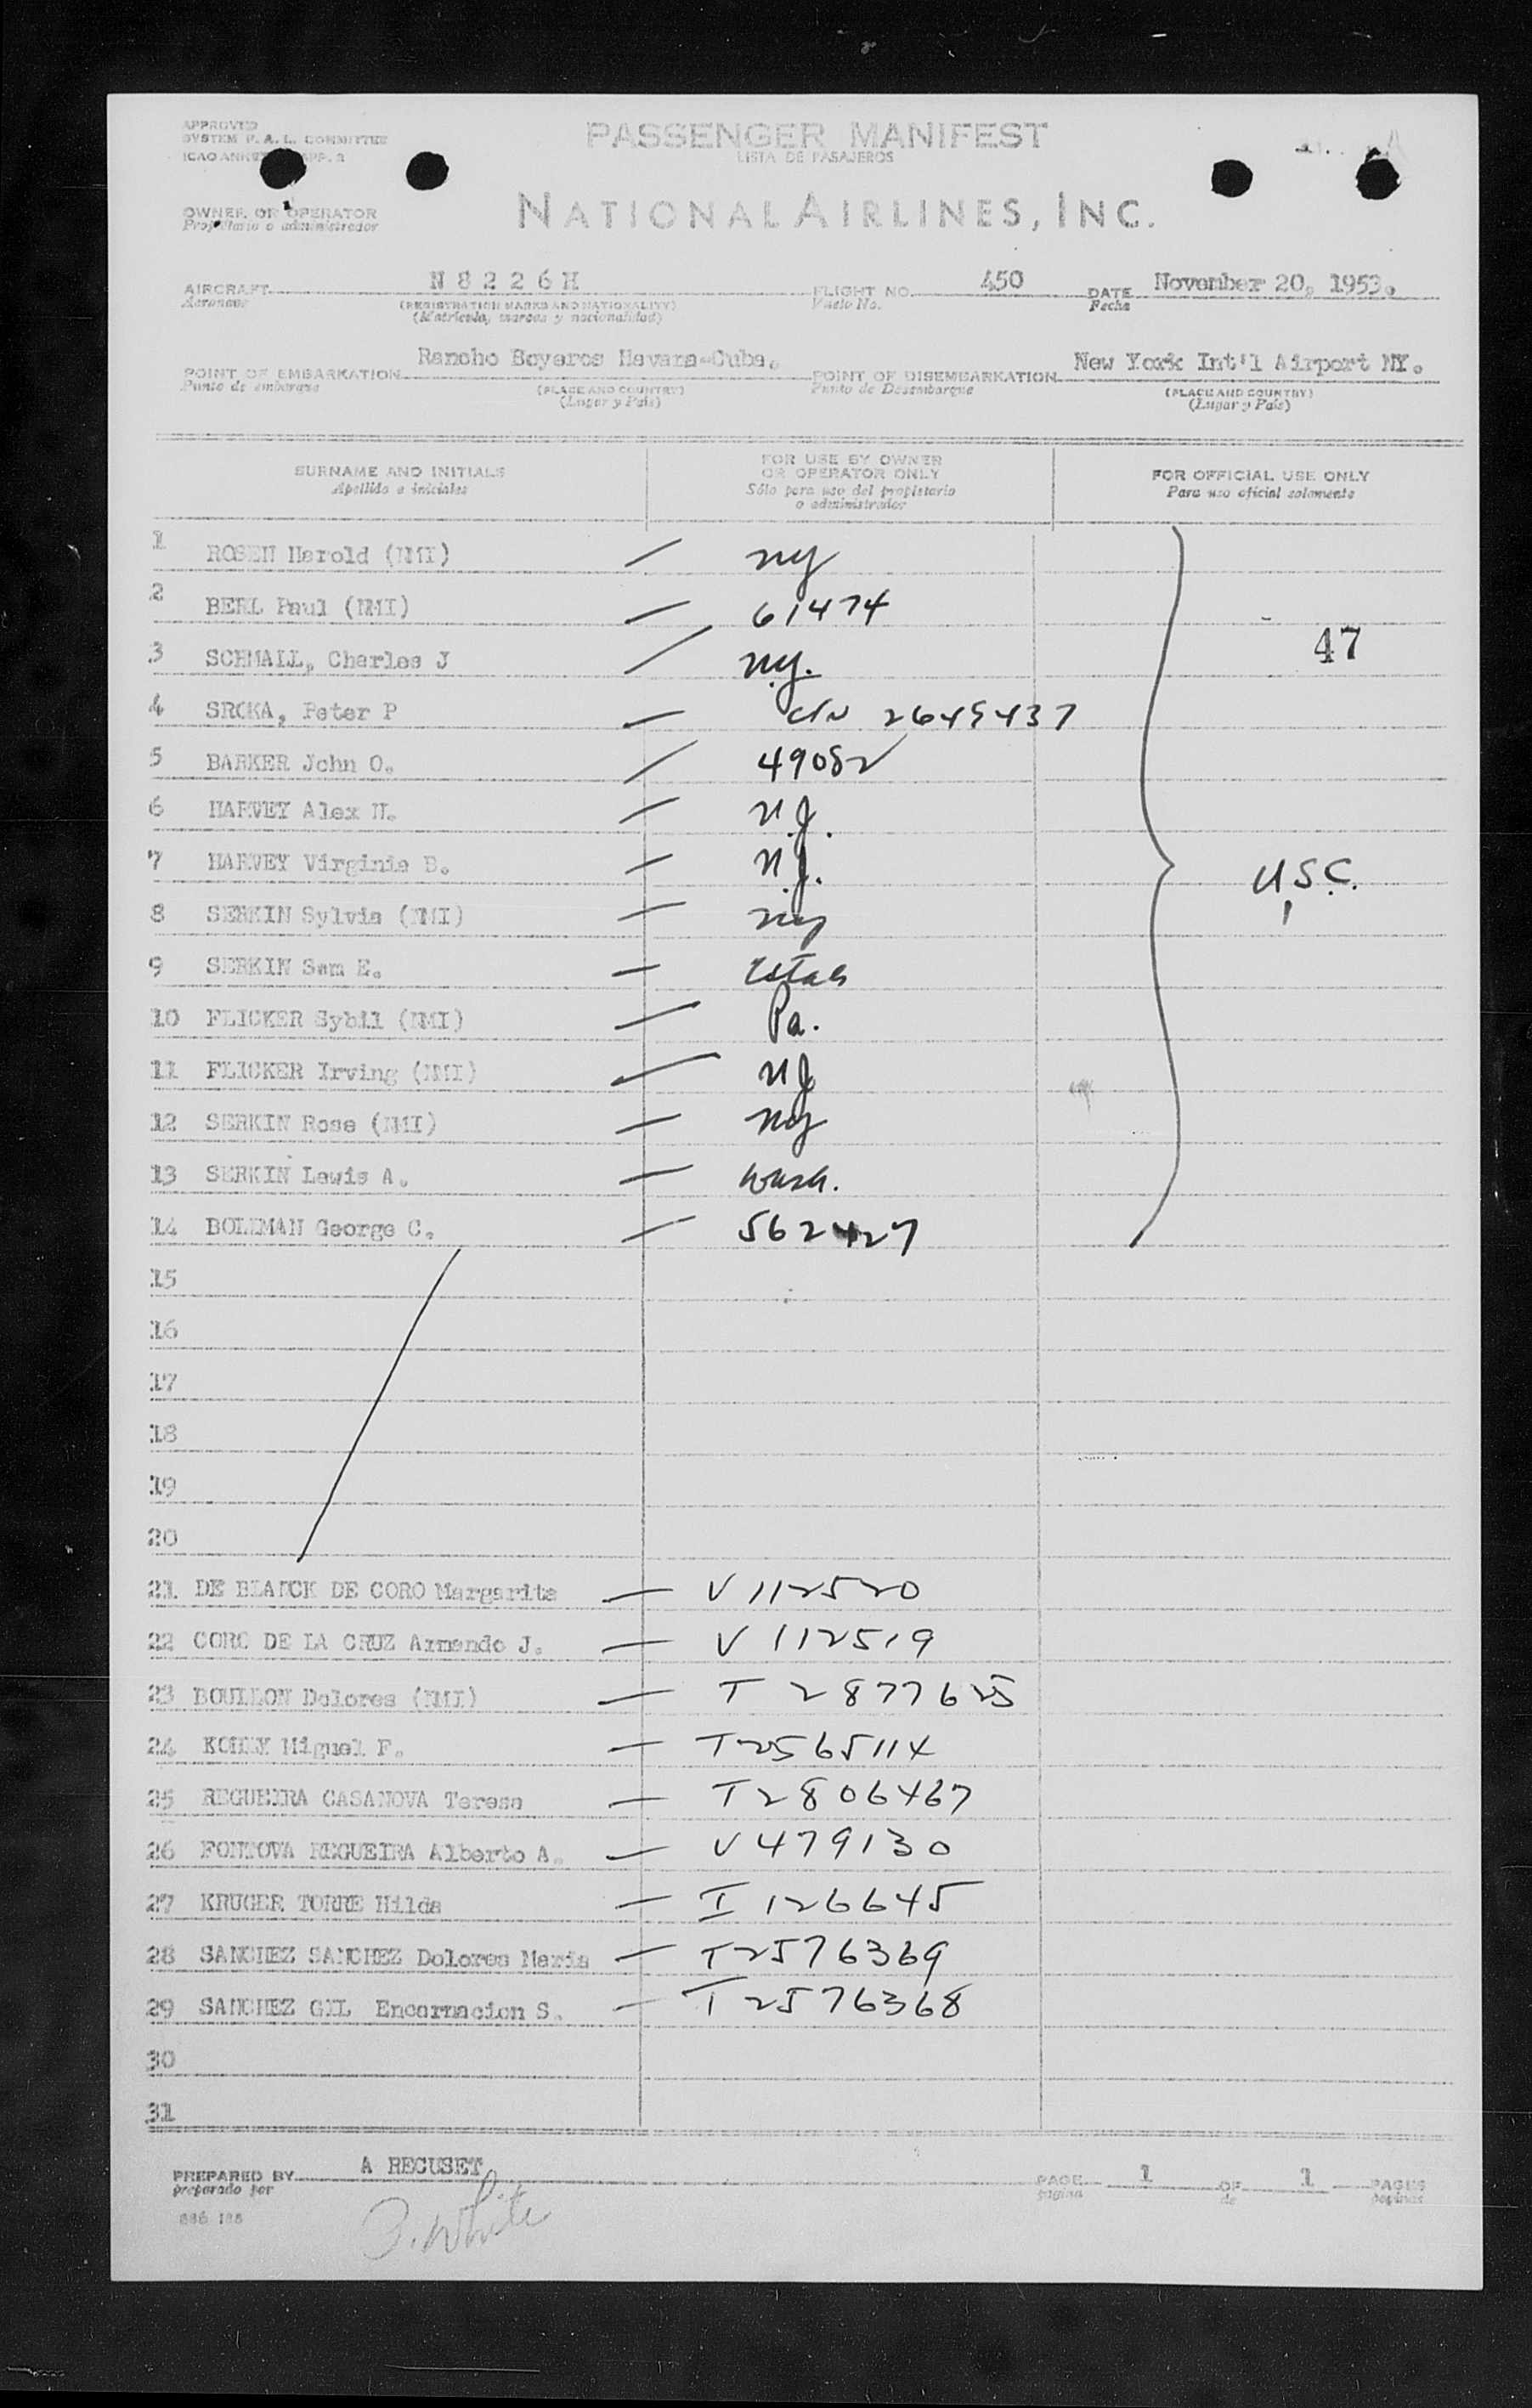 APPROVED
SYSTEM F. A. L. COMMITTEE
ICAO ANNEX APP. 2
PASSENGER MANIFEST
LISTA DE PASAJEROS
OWNER OR OPERATOR
Propietario o administrador
NATIONAL AIRLINES, INC.
AIRCRAFT N 8 2 2 6 H FLIGHT NO. 450 DATE November 20, 1953.
Aeronave (REGISTRATION MARKS AND NATIONALITY) Vuelo No. Fecha
(Matricula, marcas y nacionalidad)
POINT OF EMBARKATION Rancho Boyeros Havana-Cuba. POINT OF DISEMBARKATION New York Int'l Airport NY.
Punto de embarque (PLACE AND COUNTRY) Punto de Desembarque (PLACE AND COUNTRY)
(Lugar y País) (Lugar y País)
SURNAME AND INITIALS
Apellido e iniciales
FOR USE BY OWNER
OR OPERATOR ONLY
Sólo para uso del propietario
o administrador
FOR OFFICIAL USE ONLY
Para uso oficial solamente
1 ROSEN Harold (NMI) — NY
2 BERL Paul (NMI) — 61474
47
3 SCHMALL, Charles J — N.Y.
4 SROKA, Peter P — C/N 2649437
5 BARKER John O. — 49082
6 HARVEY Alex H. — N.J.
7 HARVEY Virginia D. — N.J.
U.S.C.
8 SERKIN Sylvia (NMI) — NY
9 SERKIN Sam E. — Estab
10 FLICKER Sybil (NMI) — Pa.
11 FLICKER Irving (NMI) — NJ
12 SERKIN Rose (NMI) — NY
13 SERKIN Lewis A. — Wash.
14 BOLLMAN George C. — 562427
15
16
17
18
19
20
21 DE BLANCK DE CORO Margarita — V 112520
22 CORO DE LA CRUZ Armando J. — V 112519
23 BOULLON Dolores (NMI) — T 2877625
24 KOHLY Miguel F. — T2565114
25 REGUEIRA CASANOVA Teresa — T2806467
26 FONTOVA REGUEIRA Alberto A. — V479130
27 KRUGER TORRE Hilda — I 126645
28 SANCHEZ SANCHEZ Dolores Maria — T2576369
29 SANCHEZ GIL Encarnacion S. — T2576368
30
31
PREPARED BY A RECUSET PAGE 1 OF 1 PAGES
preparado por pagina de paginas
White